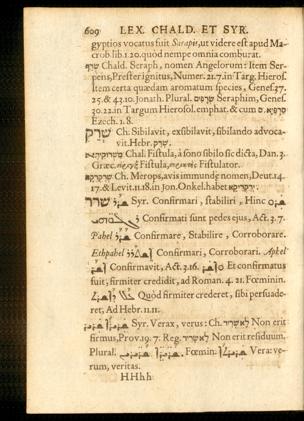 609 LEX. CHALD. ET SYR.
gyptios vocatus fuit Serapis, ut videre est apud Ma-
crob. lib. 1. 20. quòd nempe omnia comburat.
שרף Chald. Seraph, nomen Angelorum: Item Ser-
pens, Prester ignitus, Numer. 21.7. in Targ. Hieros.
Item certa quædam aromatum species, Genes. 37.
25. & 43.10. Jonath. Plural. שרפים Seraphim, Genes.
30.22. in Targum Hierosol. emphat. & cum
Ezech. 1. 8.
שרק Ch. Sibilavit, exsibilavit, sibilando advoca-
vit. Hebr. שרק
Chal. Fistula, à sono sibilo sic dicta, Dan. 3.
Græc. Fistulator.
Ch. Merops, avis immundæ nomen, Deut. 14.
17. & Levit. 11.18. in Jon. Onkel. habet
שרר Syr. Confirmari, stabiliri, Hinc
Confirmati sunt pedes ejus, Act. 3. 7.
Pahel Confirmare, Stabilire, Corroborare.
Ethpahel Confirmari, Corroborari. Aphel
Confirmavit, Act. 3.16. Et confirmatus
fuit, firmiter credidit, ad Roman. 4. 21. Fœminin.
Quòd firmiter crederet, sibi persuade-
ret, Ad Hebr. 11.11.
Syr. Verax, verus: Ch. Non erit
firmus, Prov. 19. 7. Reg. Non erit residuum.
Plural. Fœmin. Vera: ve-
rum, veritas.
HHhh